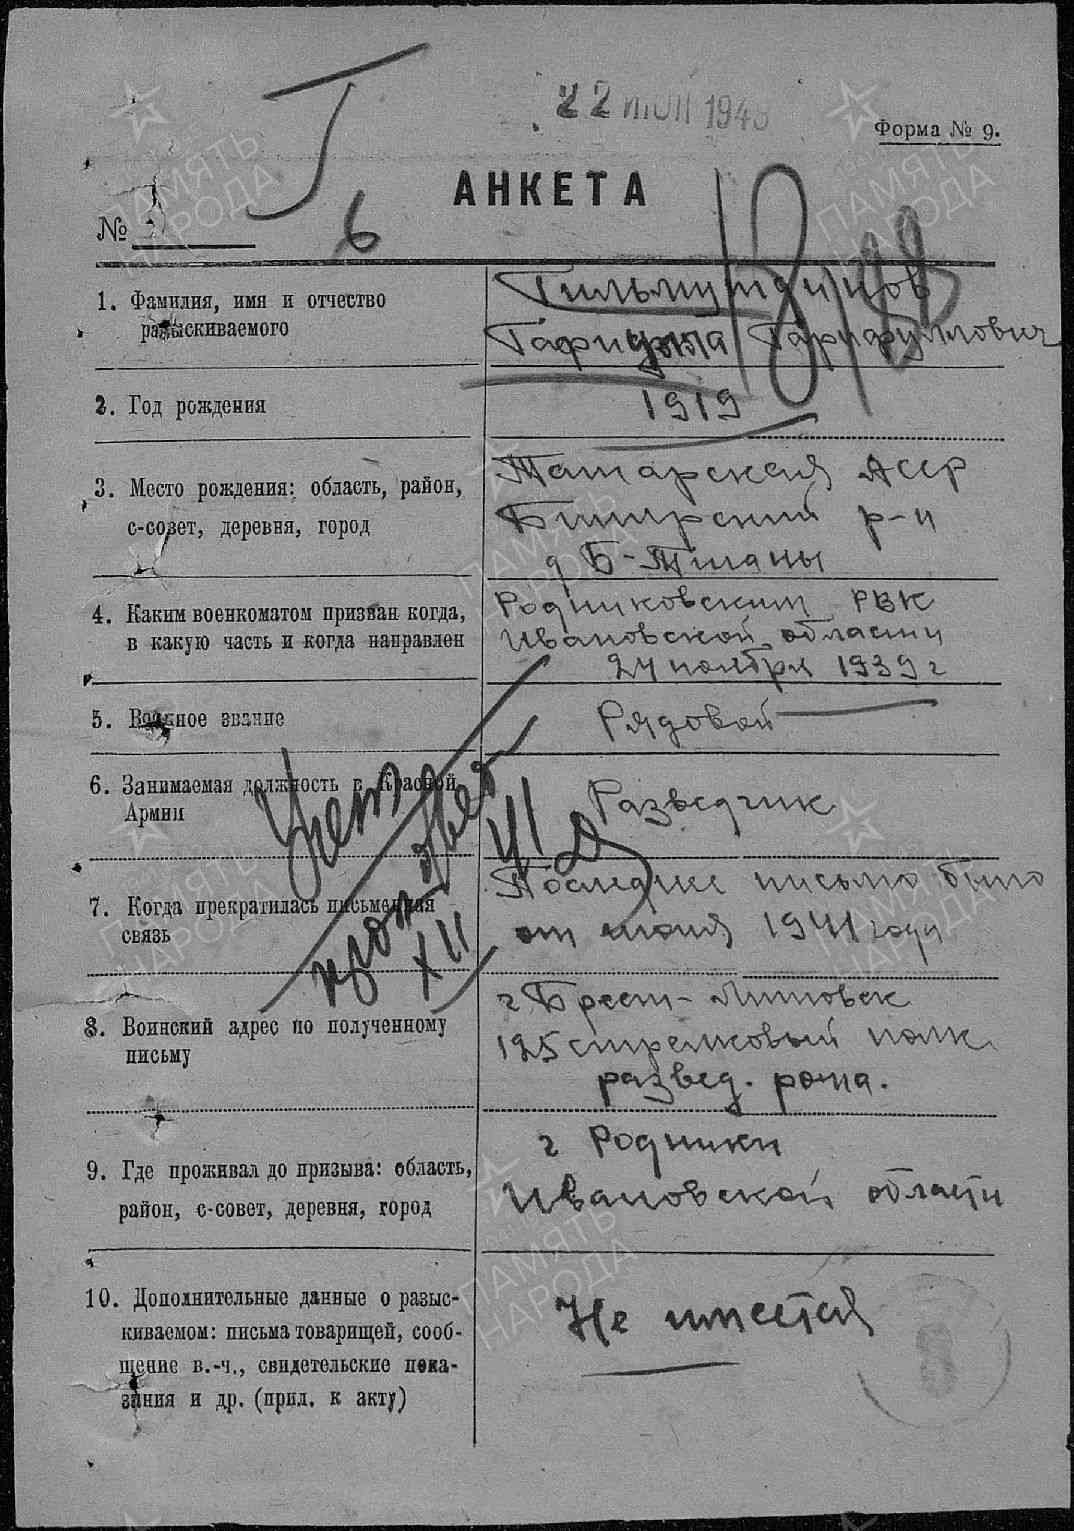 22 ИЮЛ 194
Форма № 9.
АНКЕТА
№
6
1. Фамилия, имя и отчество
разыскиваемого
Гильмутдинов
Гарифуллович
2. Год рождения
1919
3. Место рождения: область, район,
с-совет, деревня, город
Татарская АССР
р-н
д Б-Тиганы
4. Каким военкоматом призван когда,
в какую часть и когда направлен
Родниковским РВК
Ивановской области
24 ноября 1939 г
5. Военное звание
Рядовой
6. Занимаемая должность в Красной
Армии
Разведчик
7. Когда прекратилась письменная
связь
Последнее письмо было
от июня 1941 года
8. Воинский адрес по полученному
письму
г Брест-Литовск
125 стрелковый полк
развед. рота.
9. Где проживал до призыва: область,
район, с-совет, деревня, город
г Родники
Ивановской области
10. Дополнительные данные о разыс-
киваемом: письма товарищей, сооб-
щение в.-ч., свидетельские пока-
зания и др. (прил. к акту)
Не имеется
ПАМЯТЬ
НАРОДА
ПАМЯТЬ
НАРОДА
ПАМЯТЬ
НАРОДА
ПАМЯТЬ
НАРОДА
ПАМЯТЬ
НАРОДА
ПАМЯТЬ
НАРОДА